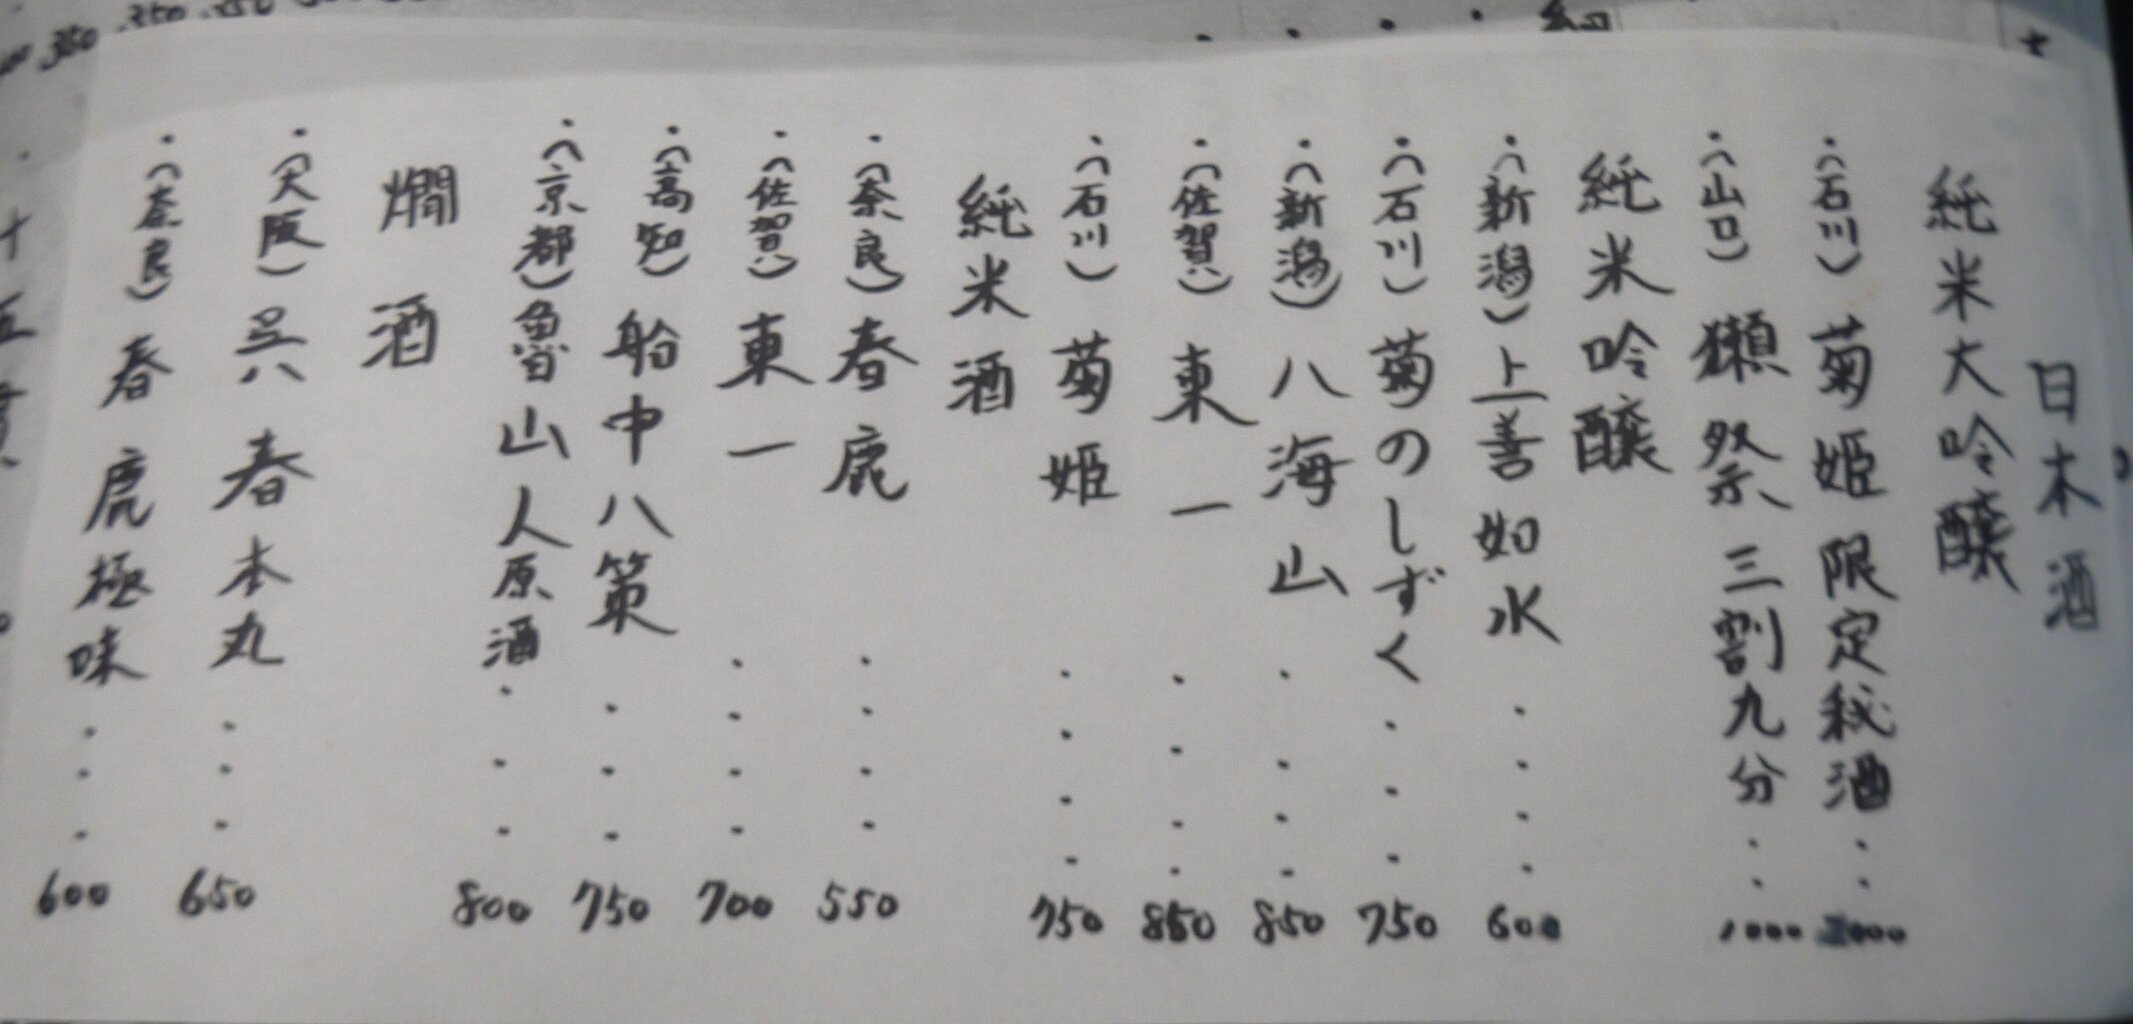 日本酒
純米大吟醸
・(石川) 菊姫 限定秘酒・・2000
・(山口) 獺祭 三割九分・・1000
純米吟醸
・(新潟) 上善如水・・・・600
・(石川) 菊のしずく・・・750
・(新潟) 八海山・・・・850
・(佐賀) 東一・・・・850
・(石川) 菊姫・・・・750
純米酒
・(奈良) 春鹿・・・・550
・(佐賀) 東一・・・・700
・(高知) 船中八策・・・750
・(京都) 魯山人原酒・・・800
燗酒
・(大阪) 呉春本丸・・・650
・(奈良) 春鹿極味・・・600